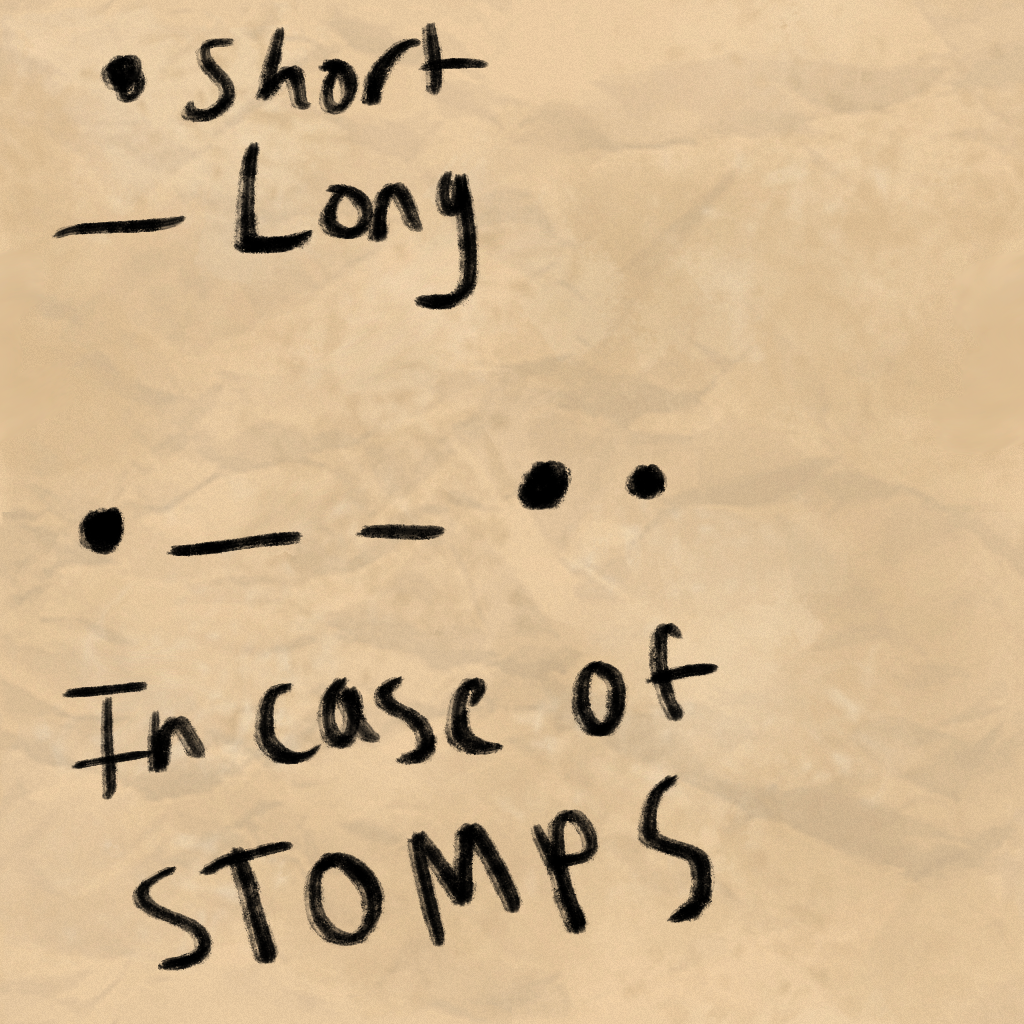 • Short
— Long
• — — • •
In case of
STOMPS